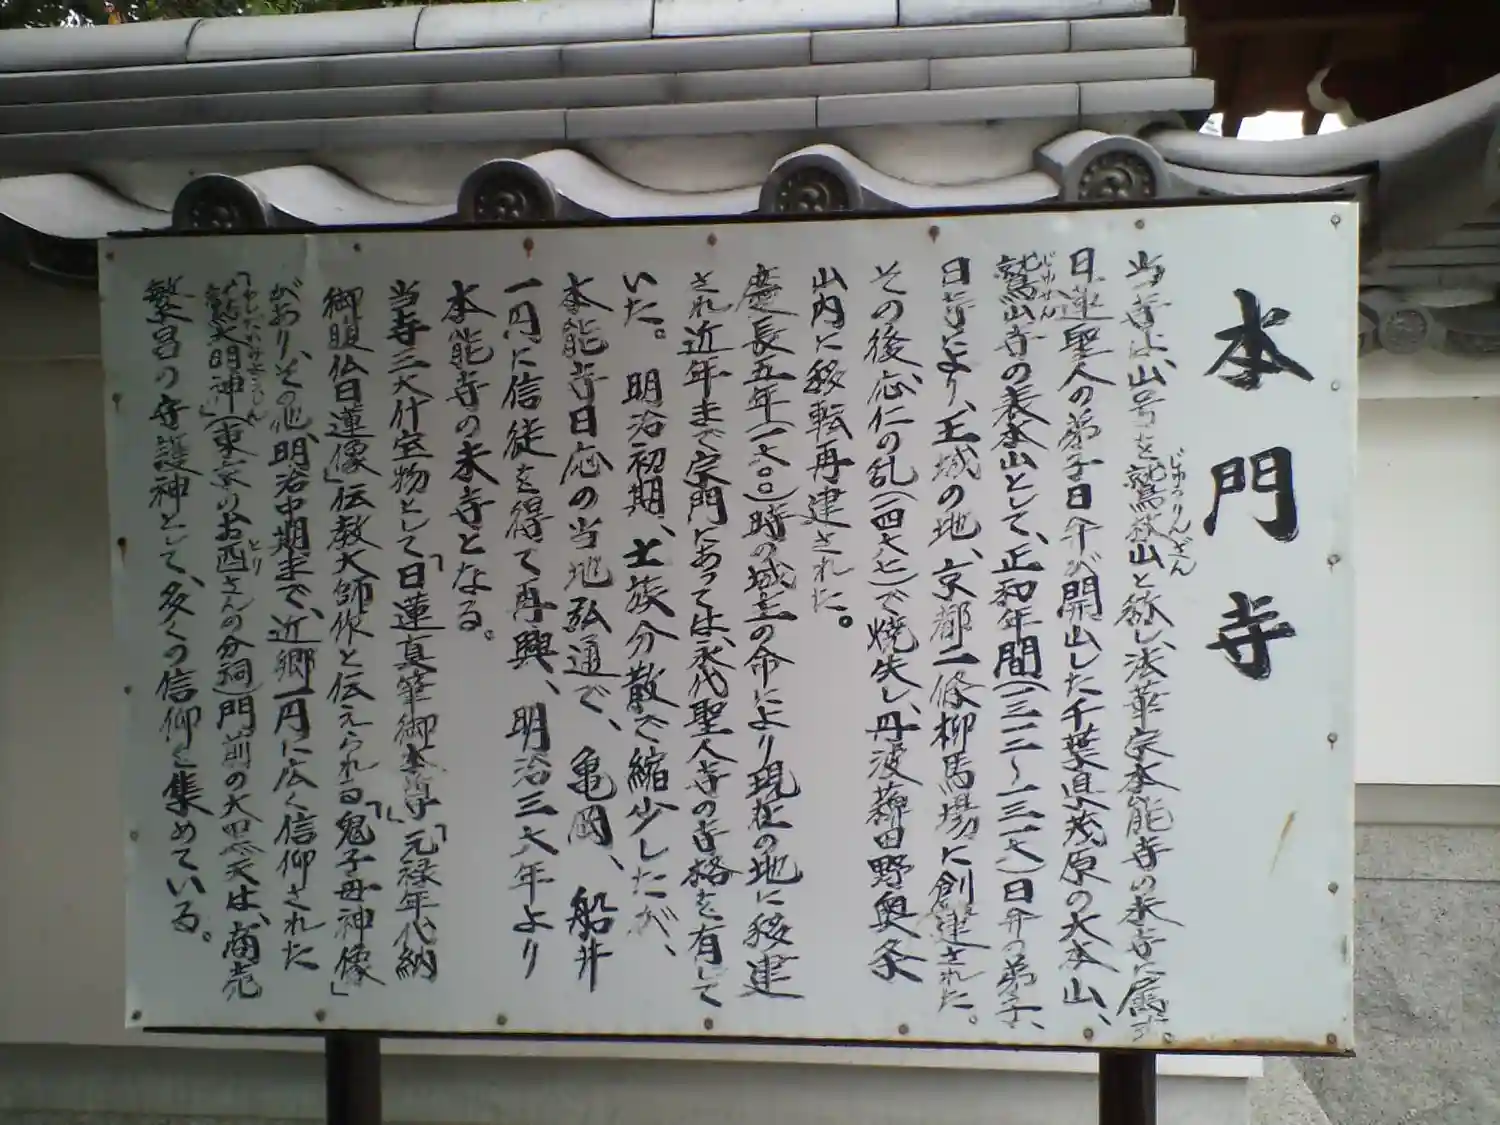 本門寺
当寺は、山号を鷲林山と称し、法華宗本能寺の末寺に属す。
じゅうりんざん
日蓮聖人の弟子日弁が開山した千葉県茂原の大本山、
鷲山寺の表本山として、正和年間(一三一二〜一三一六)日弁の弟子、
じゅせん
日寺により、王城の地、京都二條柳馬場に創建された。
その後、応仁の乱(一四六七)で焼失し、丹波薭田野奥条
山内に移転再建された。
慶長五年(一六〇〇)時の城主の命により現在の地に移建
され近年まで宗門にあっては、永代聖人寺の寺格を有して
いた。 明治初期、士族分散で縮少したが、
本能寺日応の当地弘通で、亀岡、船井
一円に信徒を得て再興、明治三六年より
本能寺の末寺となる。
当寺三大什宝物として「日蓮真筆御本尊」「元禄年代納
御眼仏日蓮像」伝教大師作と伝えられる「鬼子母神像」
があり、その他、明治中期まで、近郷一円に広く信仰された
「鷲大明神」(東京のお酉さんの分祠)門前の大黒天は、商売
とり
繁昌の守護神として、多くの信仰を集めている。